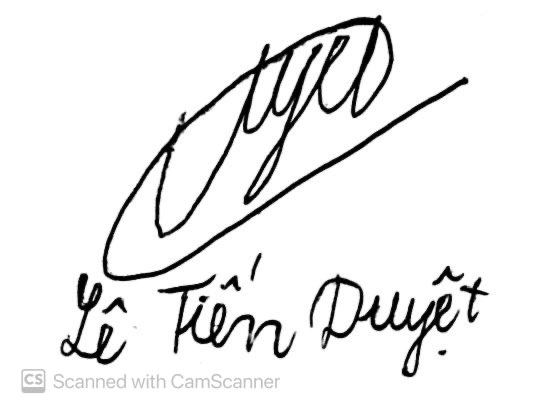 Lê Tiến Duyệt
CS Scanned with CamScanner